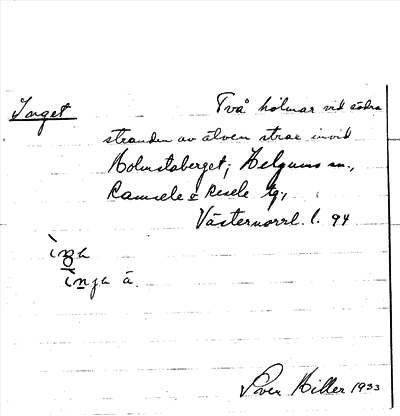 Inget
Två holmar vid södra
stranden av älven strax invid
Holmstaberget, Helgums sn.,
Ramsele o Resele tg.,
Västernorrl. l. 94
inga å.
Sven Hiller 1933